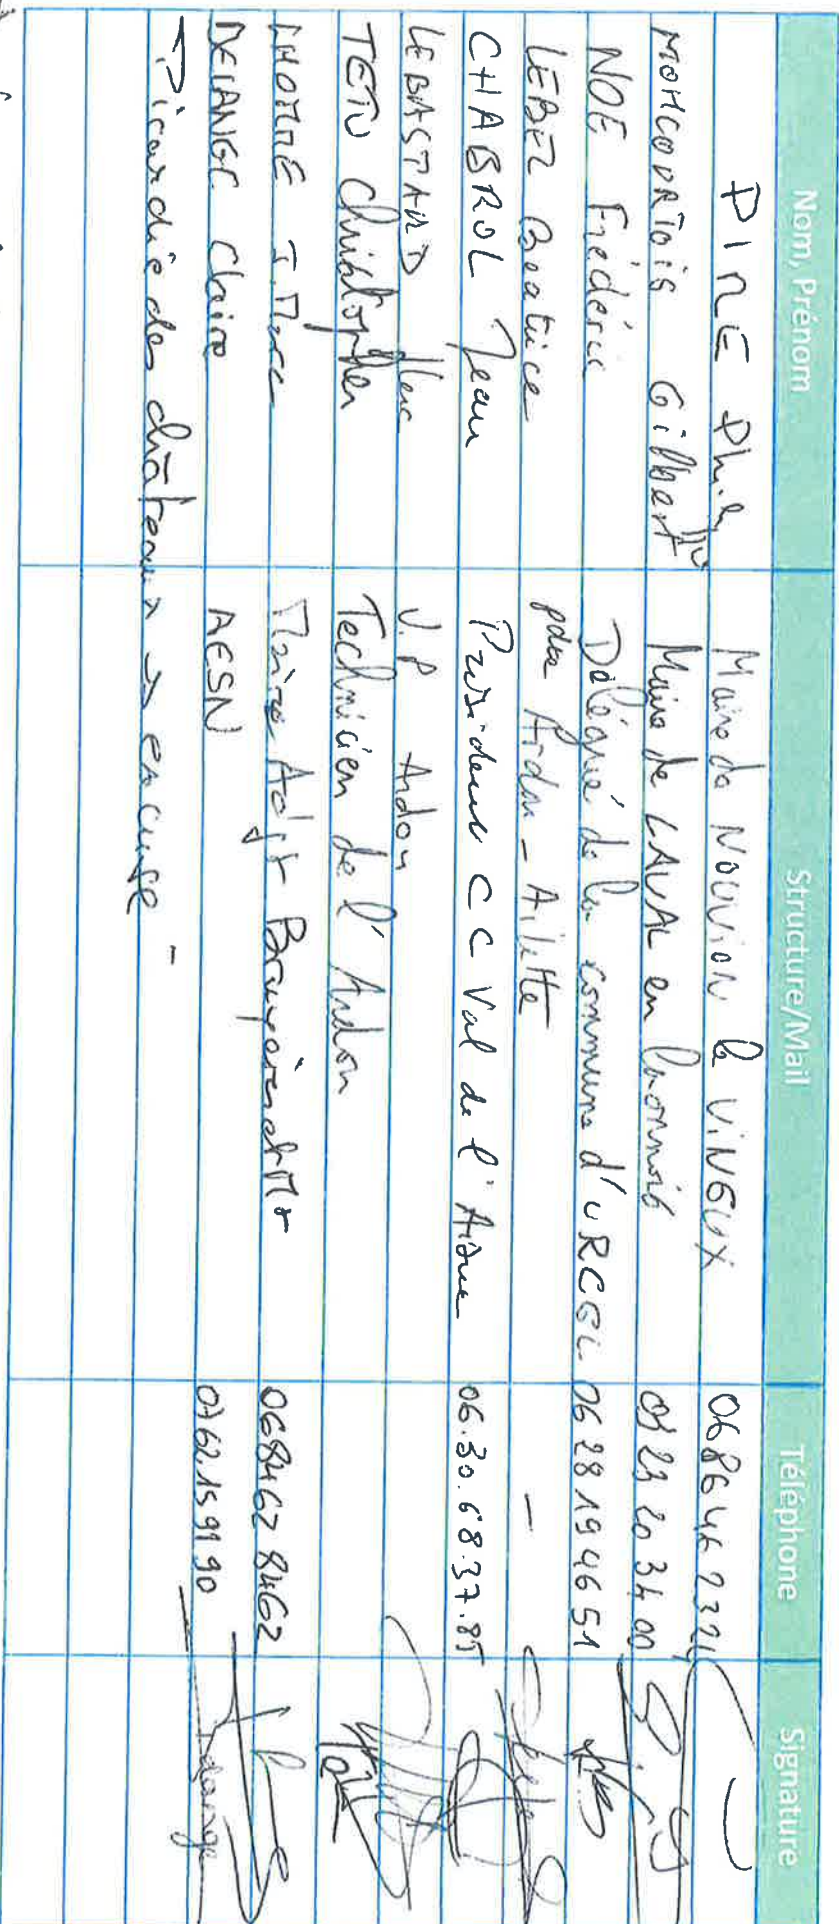 Nom, Prénom Structure/Mail Téléphone Signature
PINE Maire de NOUVION le VINEUX
MONCOURTOIS Gilbert Maire de LAVAL en Laonnois 03 23 20 34 00
NOE Frédéric Délégué de la commune d'URCEL 06 28 19 46 51
LEBEL Beatrice Ardon - Ailette -
CHABROL Jean President CC Val de l'Aisne 06.30.68.37.85
LEBASTARD V.P Ardon
TETU Christopher Technicien de l'Ardon
LHOMME J. Marc Maire Adjt 0684628462
DELANGE Claire AESN 0762159190
Picardie des châteaux → excusé -